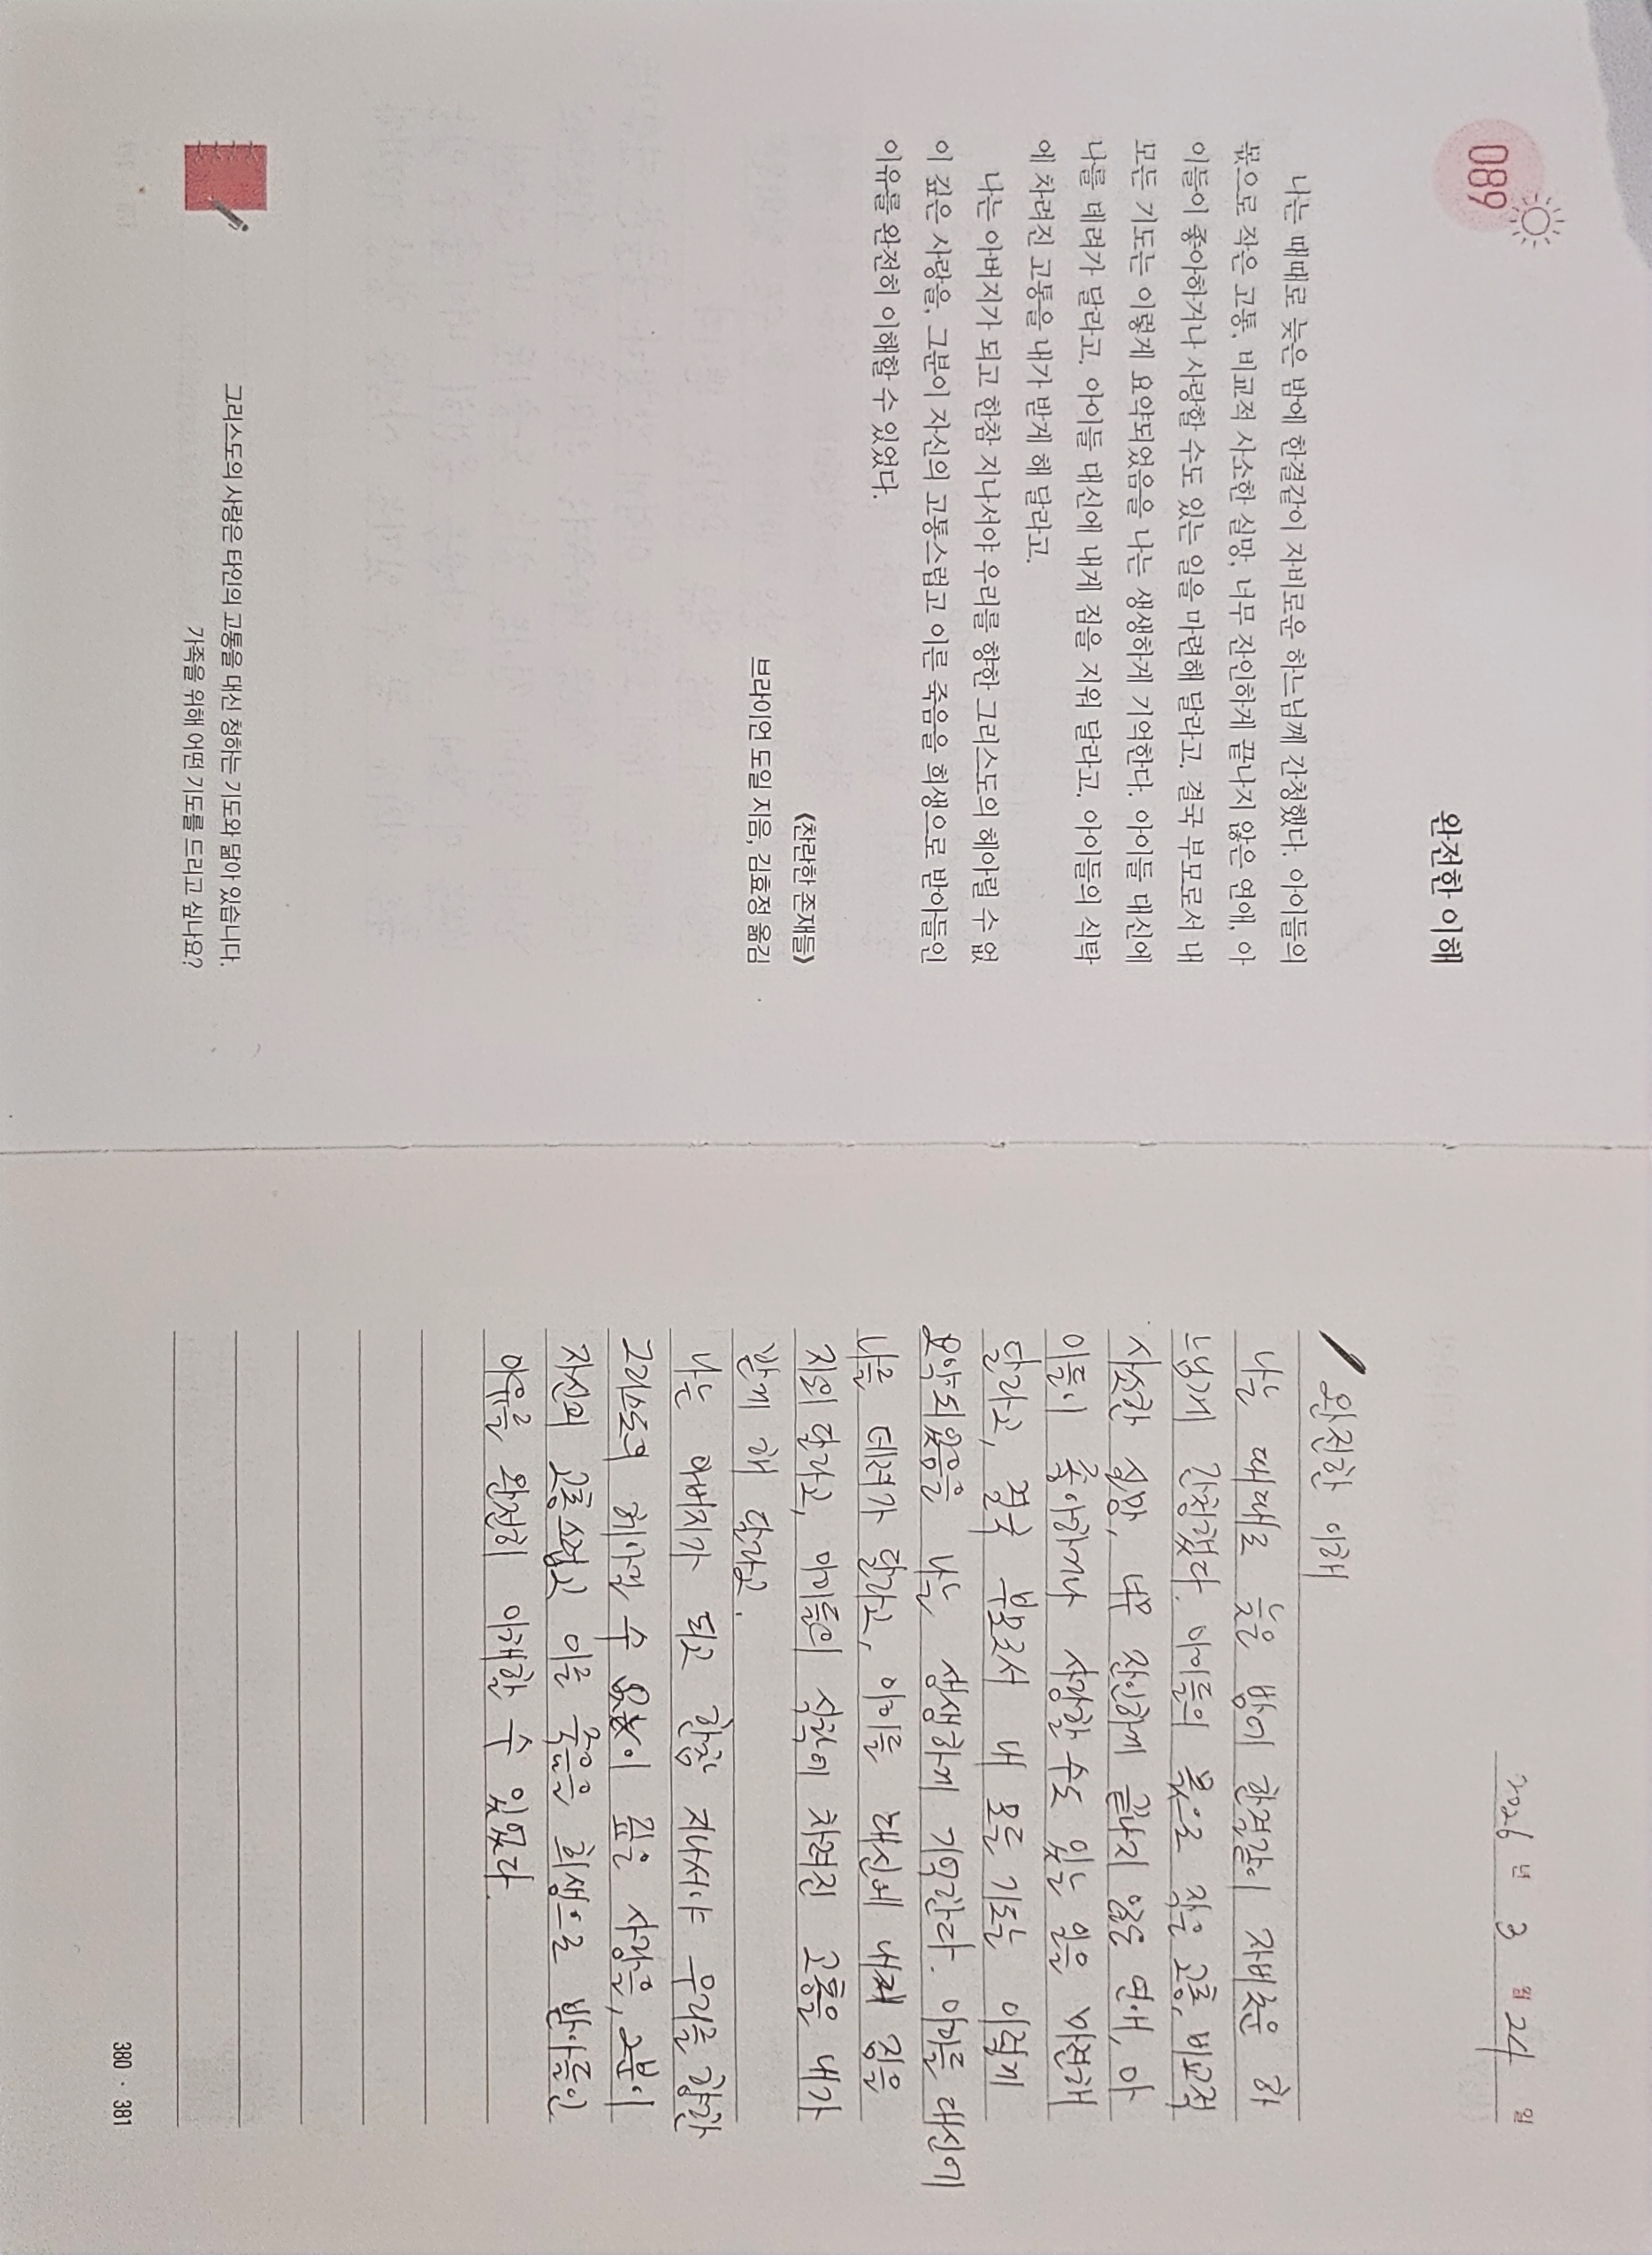 089
완전한 이해
나는 때때로 늦은 밤에 한결같이 자비로운 하느님께 간청했다. 아이들의
몫으로 작은 고통, 비교적 사소한 실망, 너무 잔인하게 끝나지 않은 연애, 아
이들이 좋아하거나 사랑할 수도 있는 일을 마련해 달라고. 결국 부모로서 내
모든 기도는 이렇게 요약되었음을 나는 생생하게 기억한다. 아이들 대신에
나를 데려가 달라고. 아이들 대신에 내게 짐을 지워 달라고. 아이들의 식탁
에 차려진 고통을 내가 받게 해 달라고.
나는 아버지가 되고 한참 지나서야 우리를 향한 그리스도의 헤아릴 수 없
이 깊은 사랑을, 그분이 자신의 고통스럽고 이른 죽음을 희생으로 받아들인
이유를 완전히 이해할 수 있었다.
《찬란한 존재들》
브라이언 도일 지음, 김효정 옮김
그리스도의 사랑은 타인의 고통을 대신 청하는 기도와 닮아 있습니다.
가족을 위해 어떤 기도를 드리고 싶나요?
2026 년 3 월 24 일
완전한 이해
나는 때때로 늦은 밤에 한결같이 자비로운 하
느님께 간청했다. 아이들의 몫으로 작은 고통, 비교적
사소한 실망, 너무 잔인하게 끝나지 않은 연애, 아
이들이 좋아하거나 사랑할 수도 있는 일을 마련해
달라고, 결국 부모로서 내 모든 기도는 이렇게
요약되었음을 나는 생생하게 기억한다. 아이들 대신에
나를 데려가 달라고, 아이들 대신에 내게 짐을
지워 달라고, 아이들의 식탁에 차려진 고통을 내가
받게 해 달라고.
나는 아버지가 되고 한참 지나서야 우리를 향한
그리스도의 헤아릴 수 없이 깊은 사랑을, 그분이
자신의 고통스럽고 이른 죽음을 희생으로 받아들인
이유를 완전히 이해할 수 있었다.
380 · 381